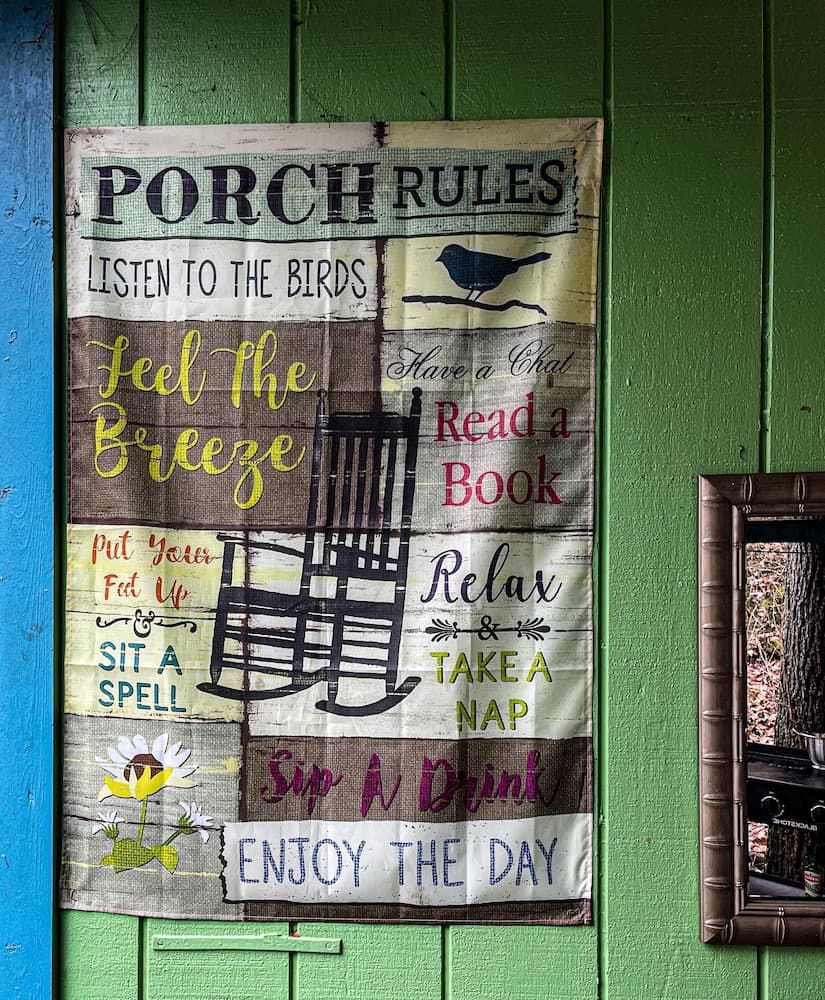 PORCH RULES
LISTEN TO THE BIRDS
Feel The
Breeze
Have a Chat
Read a
Book
Put Your
Feet Up
&
SIT A
SPELL
Relax
&
TAKE A
NAP
Sip A Drink
ENJOY THE DAY
BLACKSTONE